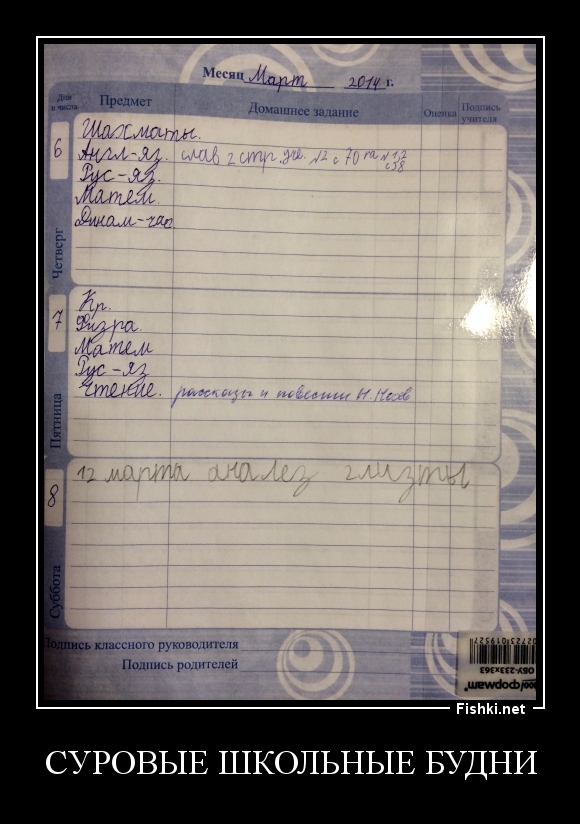 Месяц Март 2014 г.
Дни и числа Предмет Домашнее задание Оценка Подпись учителя
6
Четверг
Шахматы.
Англ-яз. слов 2 стр. уч. №2 с 70
Рус-яз.
Матем.
Динам-час
7
Пятница
Кр.
Физра.
Матем
Рус-яз
Чтение. рассказы и повести Н. Носов
8
Суббота
12 марта анализ глизты
Подпись классного руководителя
Подпись родителей
Fishki.net
СУРОВЫЕ ШКОЛЬНЫЕ БУДНИ